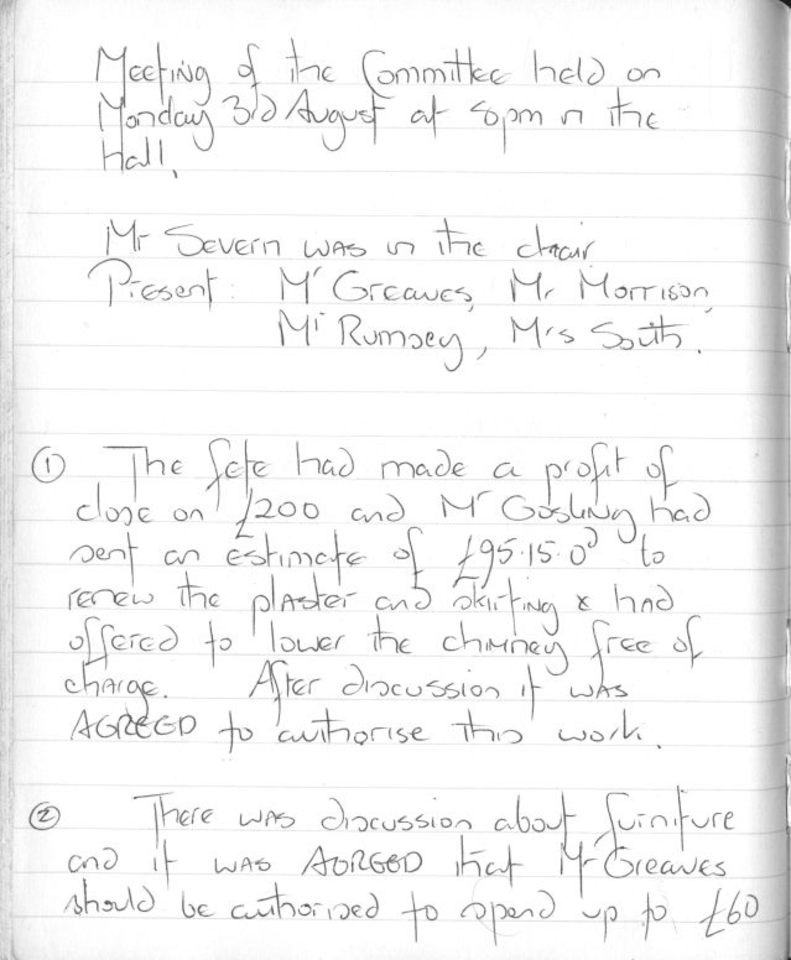 Meeting of the Committee held on
Monday 3rd August at 8pm in the
Hall.
Mr Severn was in the chair
Present: Mr Greaves, Mr Morrison,
Mr Rumsey, Mrs South.
① The fete had made a profit of
close on £200 and Mr Gosling had
sent an estimate of £95.15.0d to
renew the plaster and skirting & had
offered to lower the chimney free of
charge. After discussion it was
AGREED to authorise this work.
② There was discussion about furniture
and it was AGREED that Mr Greaves
should be authorised to spend up to £60